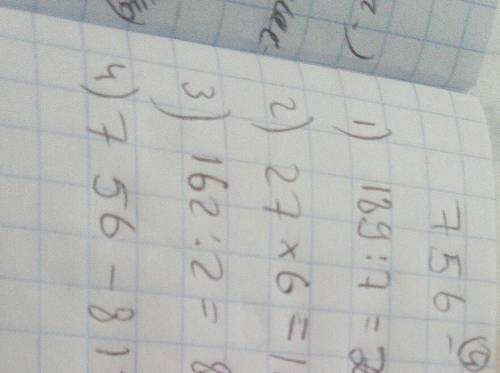 756 -
1) 189 : 7 = 2
2) 27 × 6 = 1
3) 162 : 2 = 8
4) 756 - 81